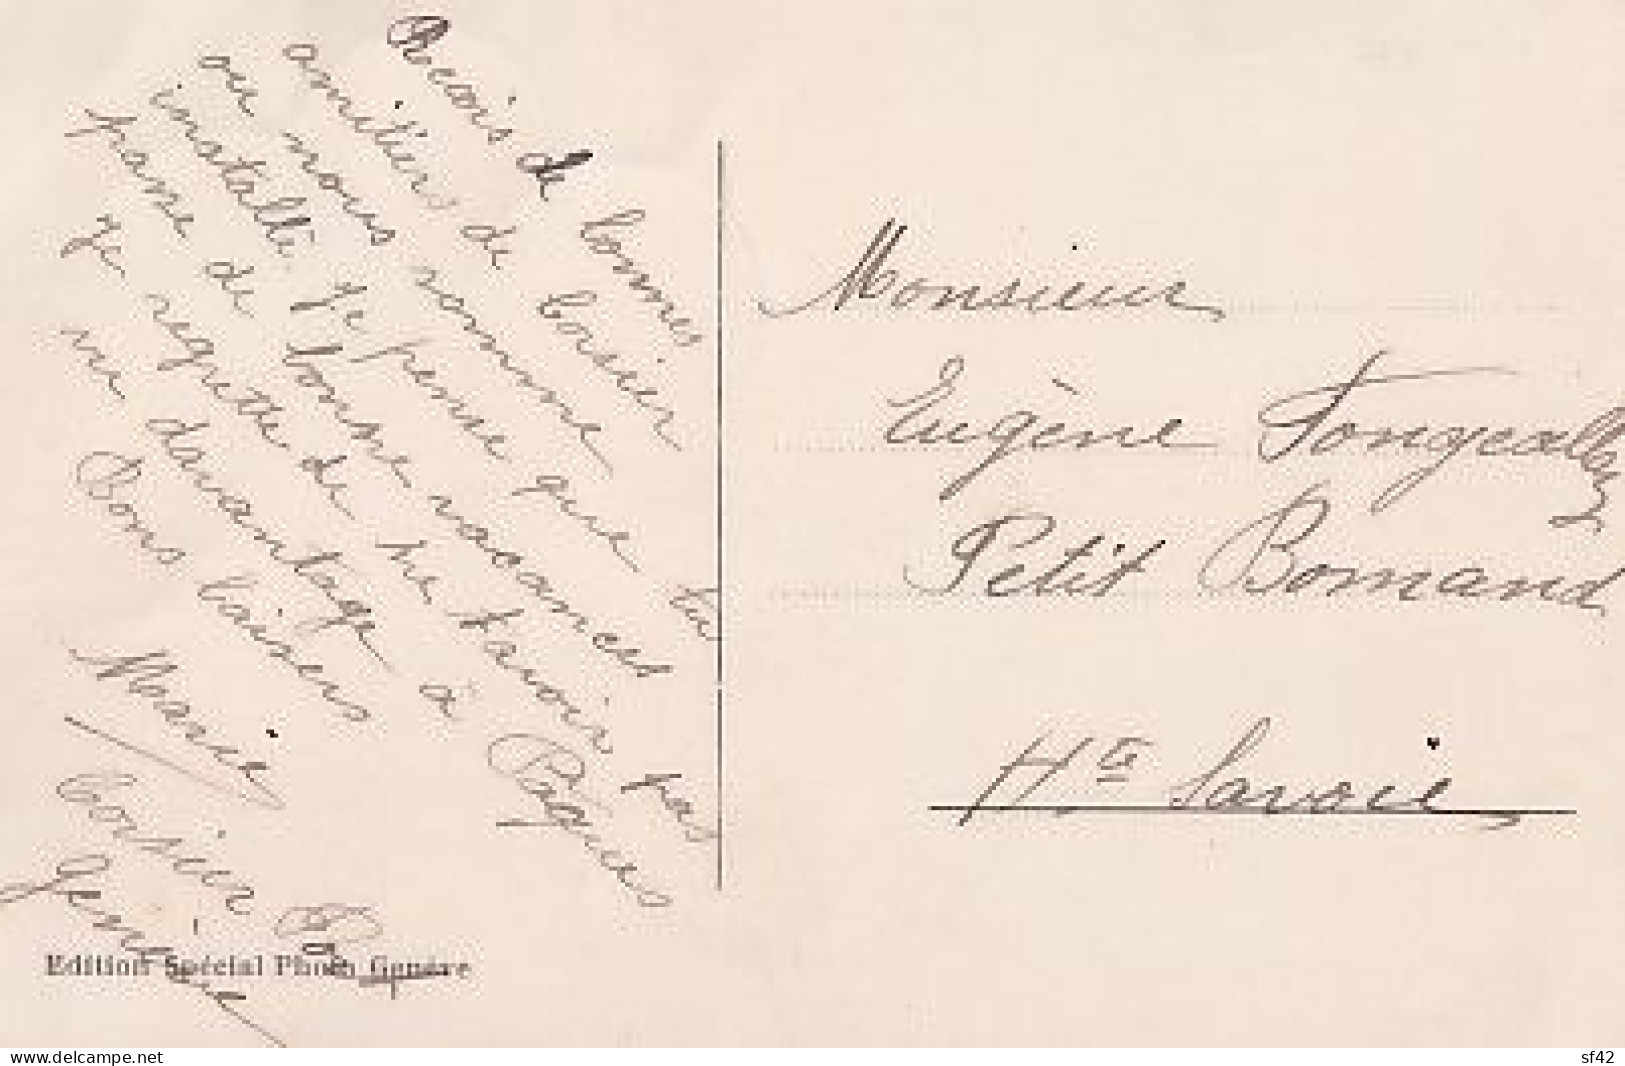 Recois de bonnes
amitiers de Corsier
ou nous somme
installé. Je pense que tu
passe de bonne vacances
Je regrette de ne t'avoir pas
vu davantage à Pâques
Bons baisers
Marie
Corsier Pt
Genève
Edition Spécial Photo Genève
Monsieur
Eugène Songeallaz
Petit Bornand
Hte Savoie
www.delcampe.net
sf42